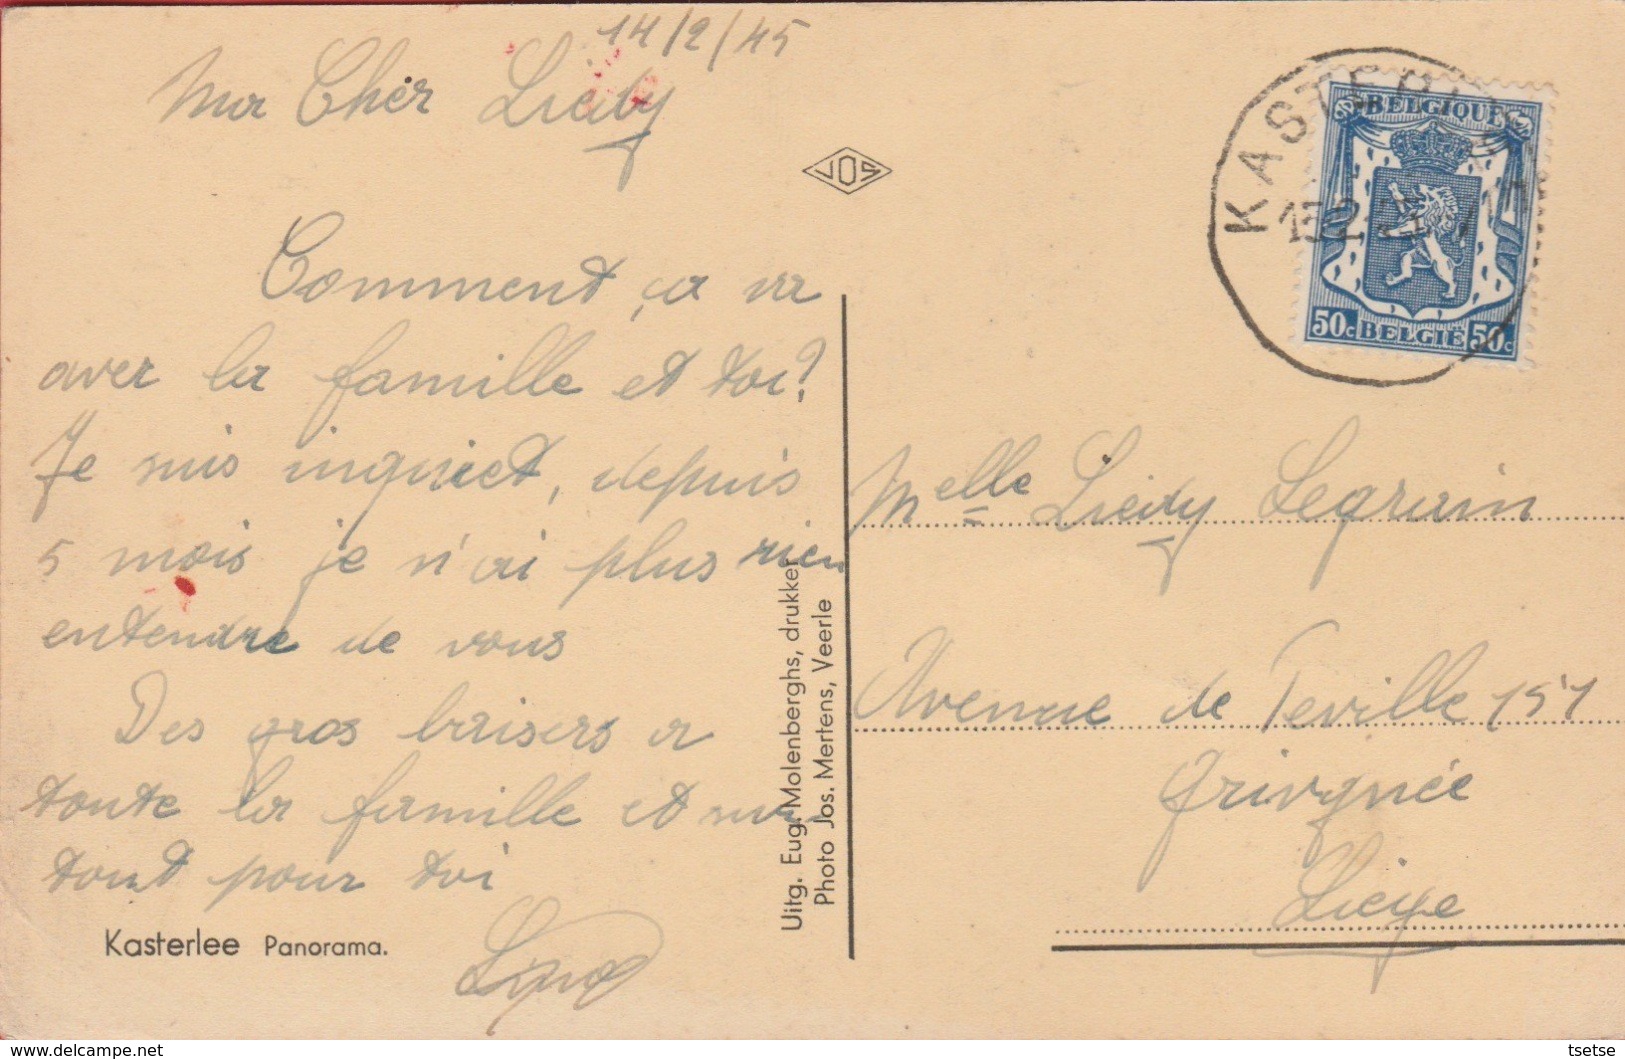 14/2/45
Ma Cher Liedy
Comment ça va
avec la famille et toi?
Je suis inquiet, depuis
5 mois je n'ai plus rien
entendre de vous
Des gros baisers a
toute la famille et sur-
tout pour toi
Kasterlee Panorama.
JOS
Uitg. Eug. Molenberghs, drukker
Photo Jos. Mertens, Veerle
KASTERLEE
BELGIQUE
50c BELGIË 50c
Melle Liedy Legrain
Avenue de Peville 151
Grivgnée
Liège
delcampe.net
tsetse